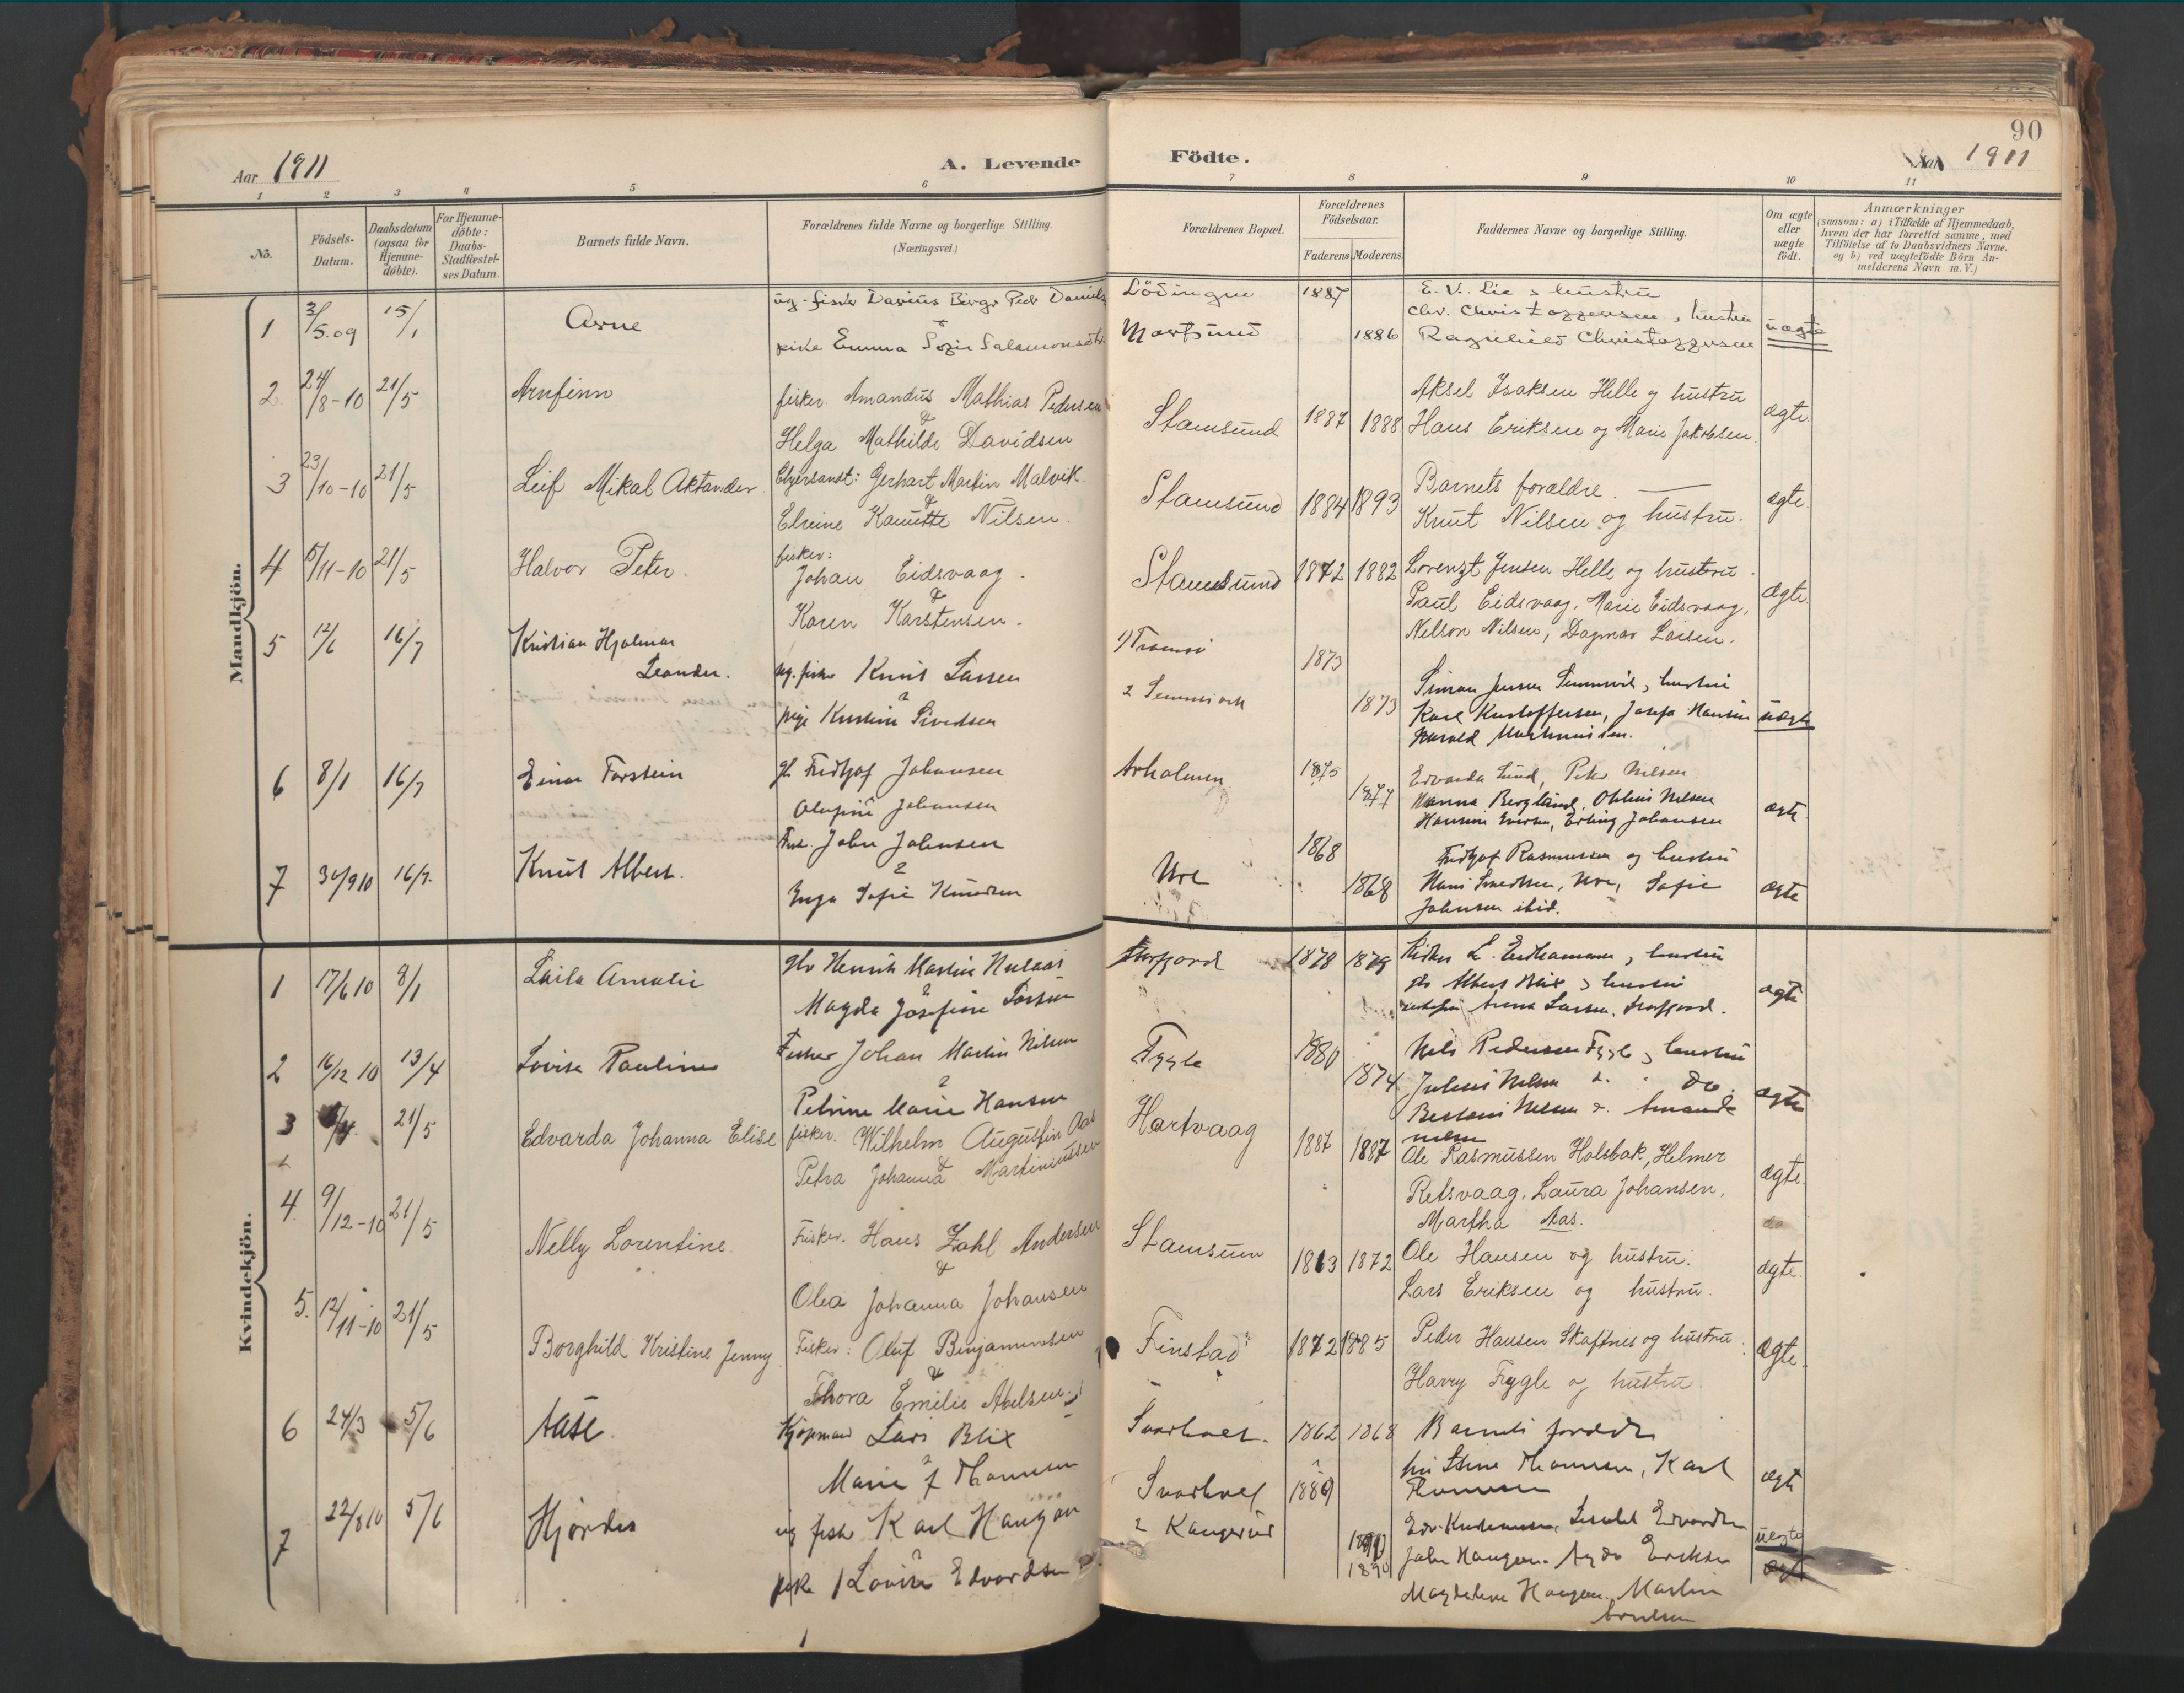 90
Aar 1911
A. Levende
Födte.
Aar 1911
1 2 3 4 5 6 7 8 9 10 11
No.
Födsels-
Datum.
Daabsdatum
(ogsaa for
Hjemme-
döbte).
For Hjemme-
döbte:
Daabs-
Stadfæstel-
ses Datum.
Barnets fulde Navn.
Forældrenes fulde Navne og borgerlige Stilling.
(Næringsvei.)
Forældrenes Bopæl.
Forældrenes
Födselsaar.
Faderens Moderens.
Faddernes Navne og borgerlige Stilling.
Om ægte
eller
uægte
födt.
Anmærkninger
(saasom: a) i Tilfælde af Hjemmedaab,
hvem der har forrettet samme, med
Tilföielse af to Daabsvidners Navne.
og b) ved uægtefödte Börn An-
melderens Navn m. V.)
Mandkjön.
1 3/5.09 15/1 Arne
ug. fisker Darius Birger Peder
pike Emma Sofie Salamonsdtr
Lödingen 1887
Mortsund 1886
E. V. Lie & hustru
Chr. Christoffersen, hustru
Ragnhild Christoffersen
uægte
2 24/8-10 21/5 Arnfinn
fisker. Amandus Mathias Pedersen
&
Helga Mathilde Davidsen
Stamsund 1887 1888
Aksel Isaksen Helle og hustru
Hans Eriksen og Marie Jakobsen.
ægte
3 23/10-10 21/5 Leif Mikal Aktander
Gerhart Martin Malvik.
&
Elveine Nilsen.
Stamsund 1884 1893
Barnets forældre.
Knut Nilsen og hustru.
ægte.
4 5/11-10 21/5 Halvor Peter.
fisker:
Johan Eidsvaag.
&
Karen Karstensen.
Stamsund 1872 1882
Lorenzt Jensen Helle og hustru.
Paul Eidsvaag, Marie Eidsvaag,
Nelson Nilsen, Dagmar Larsen.
ægte.
5 12/6 16/7 Kristian Hjalmar
Leander.
ug. fisker Knut Larsen
&
pige Kristine Sivertsen
1) Tromsö 1873
2 1873
Simon Jensen, hustru
Karl Kristoffersen, Josefa Hansen
Harald
uægte
6 8/1 16/7 Einar Torstein
Fridtjof Johansen
Olufine Johansen
Arholmen 1875
1877
Edvarda Lund, Peder Nilsen
Hanna Berglund, Nilsen
Iversen, Erling Johansen
ægte
7 30/9 10 16/7 Knut Albert.
Fisk. John Johnsen
&
Inga Sofie Knudsen
Ure 1868
1868
Fridtjof Rasmussen og hustru
Hans, Ure, Sofie
Johnsen ibid.
ægte
Kvindekjön.
1 17/6 10 8/1 Laila Amalie
Henrik Martin
&
Magda Josefine
Storfjord 1878 1879
L., hustru
Albert Blix & hustru
Anna Larsen, Storfjord.
ægte
2 16/12 10 13/4 Lovise Pauline
Fisker Johan Martin Nilsen
&
Petrine Marie Hansen
Fygle 1880
1874
Nils Pedersen Fygle & hustru
Julius Nilsen do.
Nilsen Amanda
Nilsen
ægte
3 21/5 Edvarda Johanna Elise
fisker. Wilhelm Augustin Aas
&
Petra Johanna Martiniussen
Hartvaag 1887 1887
Ole Rasmussen Holsbak, Helmer
Retsvaag, Laura Johansen,
Martha Aas.
ægte.
4. 9/12-10 21/5 Nelly Lorentine.
Fisker. Hans Zahl Andersen
&
Olea Johanna Johansen
Stamsund 1863 1872
Ole Hansen og hustru.
Lars Eriksen og hustru.
ægte.
5. 12/11-10 21/5 Borghild Kristine Jenny
Fisker: Oluf Benjaminsen
&
Thora Emilie Abelsen.
Finstad 1872 1885
Peder Hansen Skaftnes og hustru.
Harry Fygle og hustru.
ægte.
6 24/3 5/6 Aase.
Kjöpmand Lars Blix
&
Marie f. Thomsen
Svarholt. 1862 1868
Barnets forældre
Stine Thomsen, Karl
Thomsen
ægte
7 22/8 10 5/6 Hjördis
ug fisker Karl Haugan
pike Lovise Edvardsen
Svarholt 1889
2 1890
Edv. Kristiansen, Edvardsen
John Haugan. Eriksen
Magdalena Haugan, Martin
Arntsen
uægte